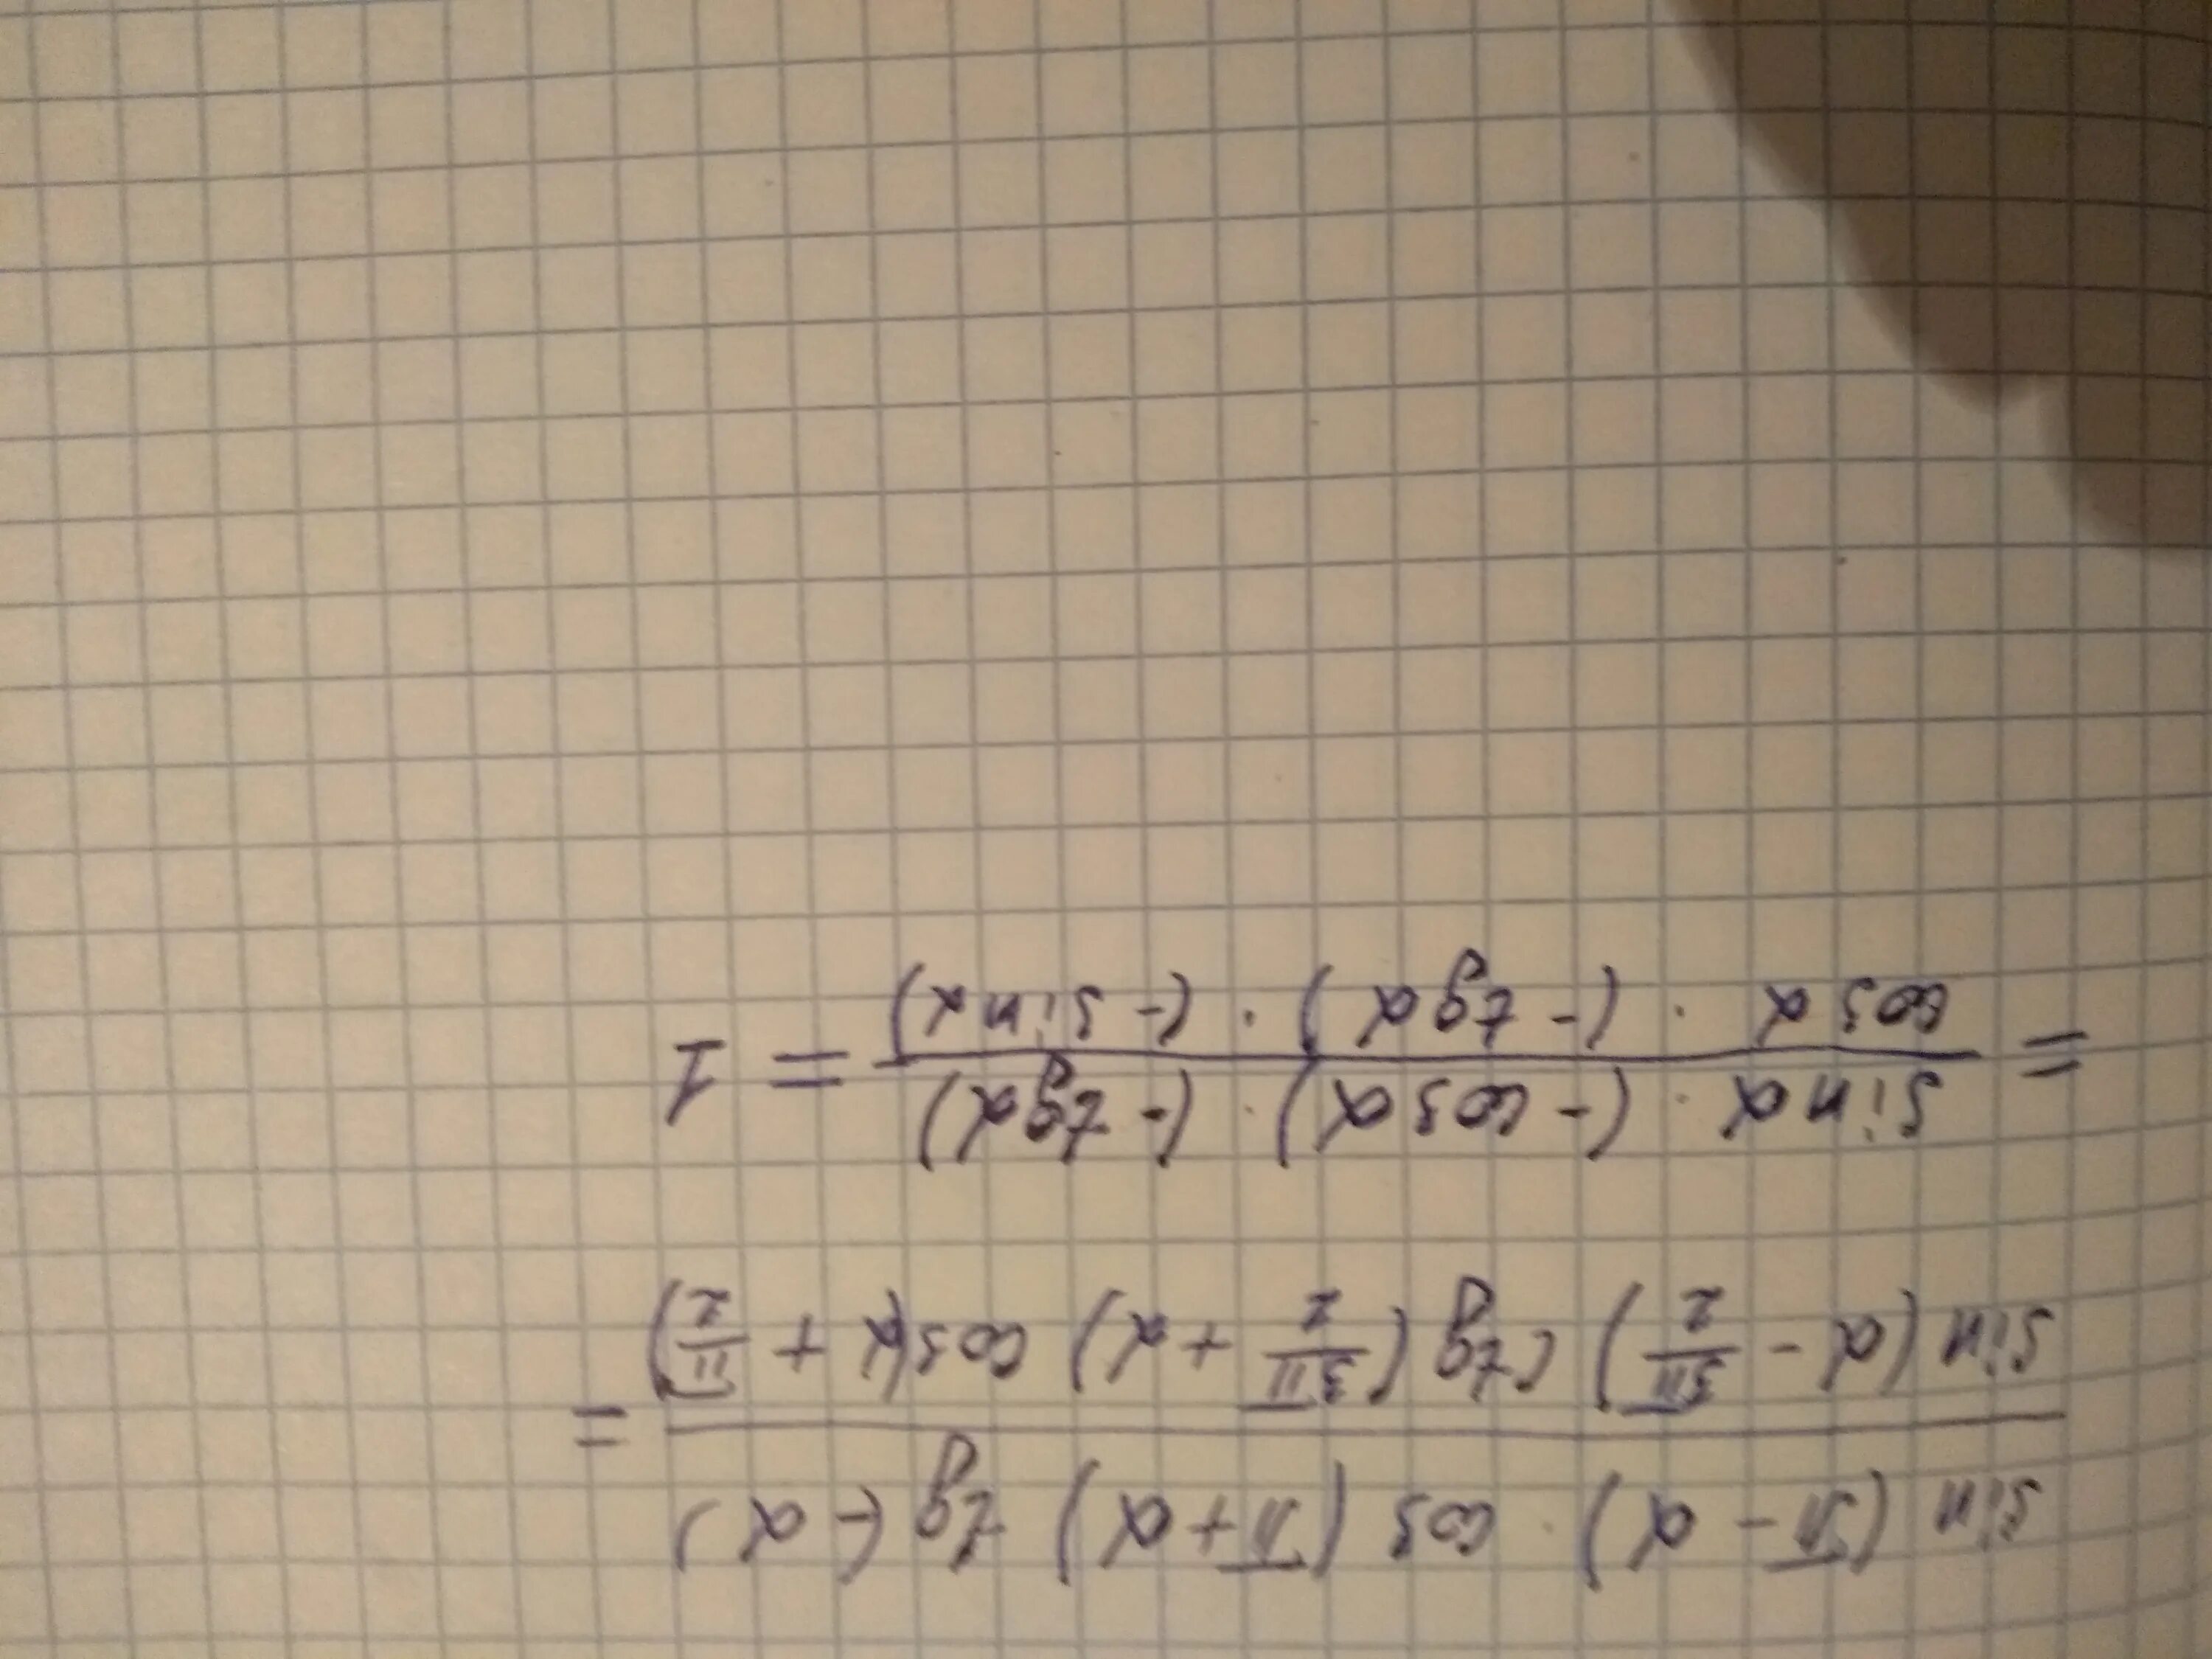 sin (π - α) · cos (π + α) tg (-α)
sin (α - 3π/2) ctg (3π/2 + α) cos(α + π/2) =
= sin α · (- cos α) · (- tg α)
cos α · (- tg α) · (- sin α) = 1